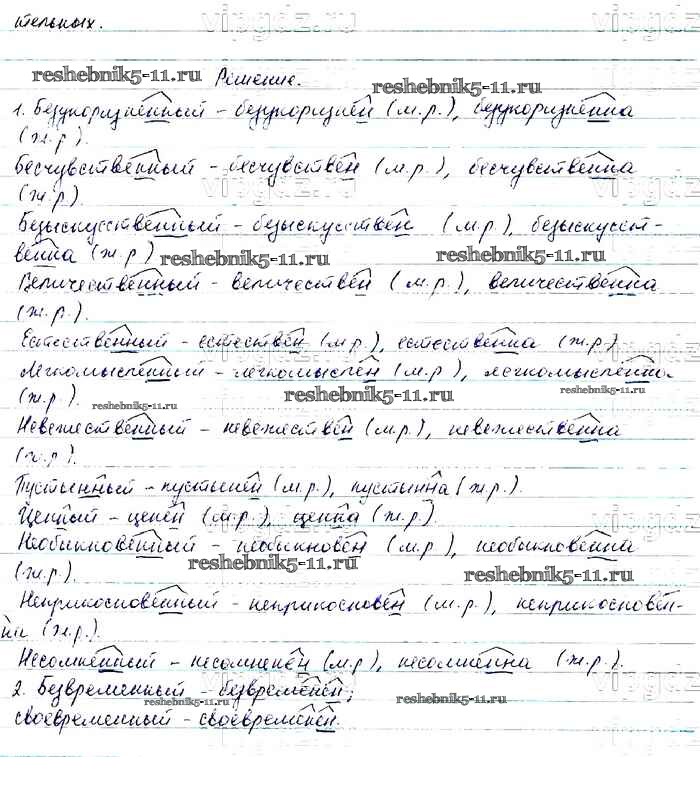 ительных.
vipgdz.ru
reshebnik5-11.ru Решение. reshebnik5-11.ru
1. Безукоризненный – безукоризнен (м.р.), безукоризненна
(ж.р.).
Бесчувственный – бесчувствен (м.р.), бесчувственна
(ж.р.).
Безыскусственный – безыскусствен (м.р.), безыскусст-
венна (ж.р.) reshebnik5-11.ru reshebnik5-11.ru
Величественный – величествен (м.р.), величественна
(ж.р.).
Естественный – естествен (м.р.), естественна (ж.р.)
Легкомысленный – легкомыслен (м.р.), легкомысленна
(ж.р.). reshebnik5-11.ru reshebnik5-11.ru reshebnik5-11.ru
Невежественный – невежествен (м.р.), невежественна
(ж.р.).
Пустынный – пустынен (м.р.), пустынна (ж.р.).
Ценный – ценен (м.р.), ценна (ж.р.).
Необыкновенный – необыкновен (м.р.), необыкновенна
(ж.р.). reshebnik5-11.ru reshebnik5-11.ru
Неприкосновенный – неприкосновен (м.р.), неприкосновен-
на (ж.р.).
Несомненный – несомненен (м.р), несомненна (ж.р.).
2. Безвременный – безвременен;
reshebnik5-11.ru reshebnik5-11.ru
своевременный – своевременен.